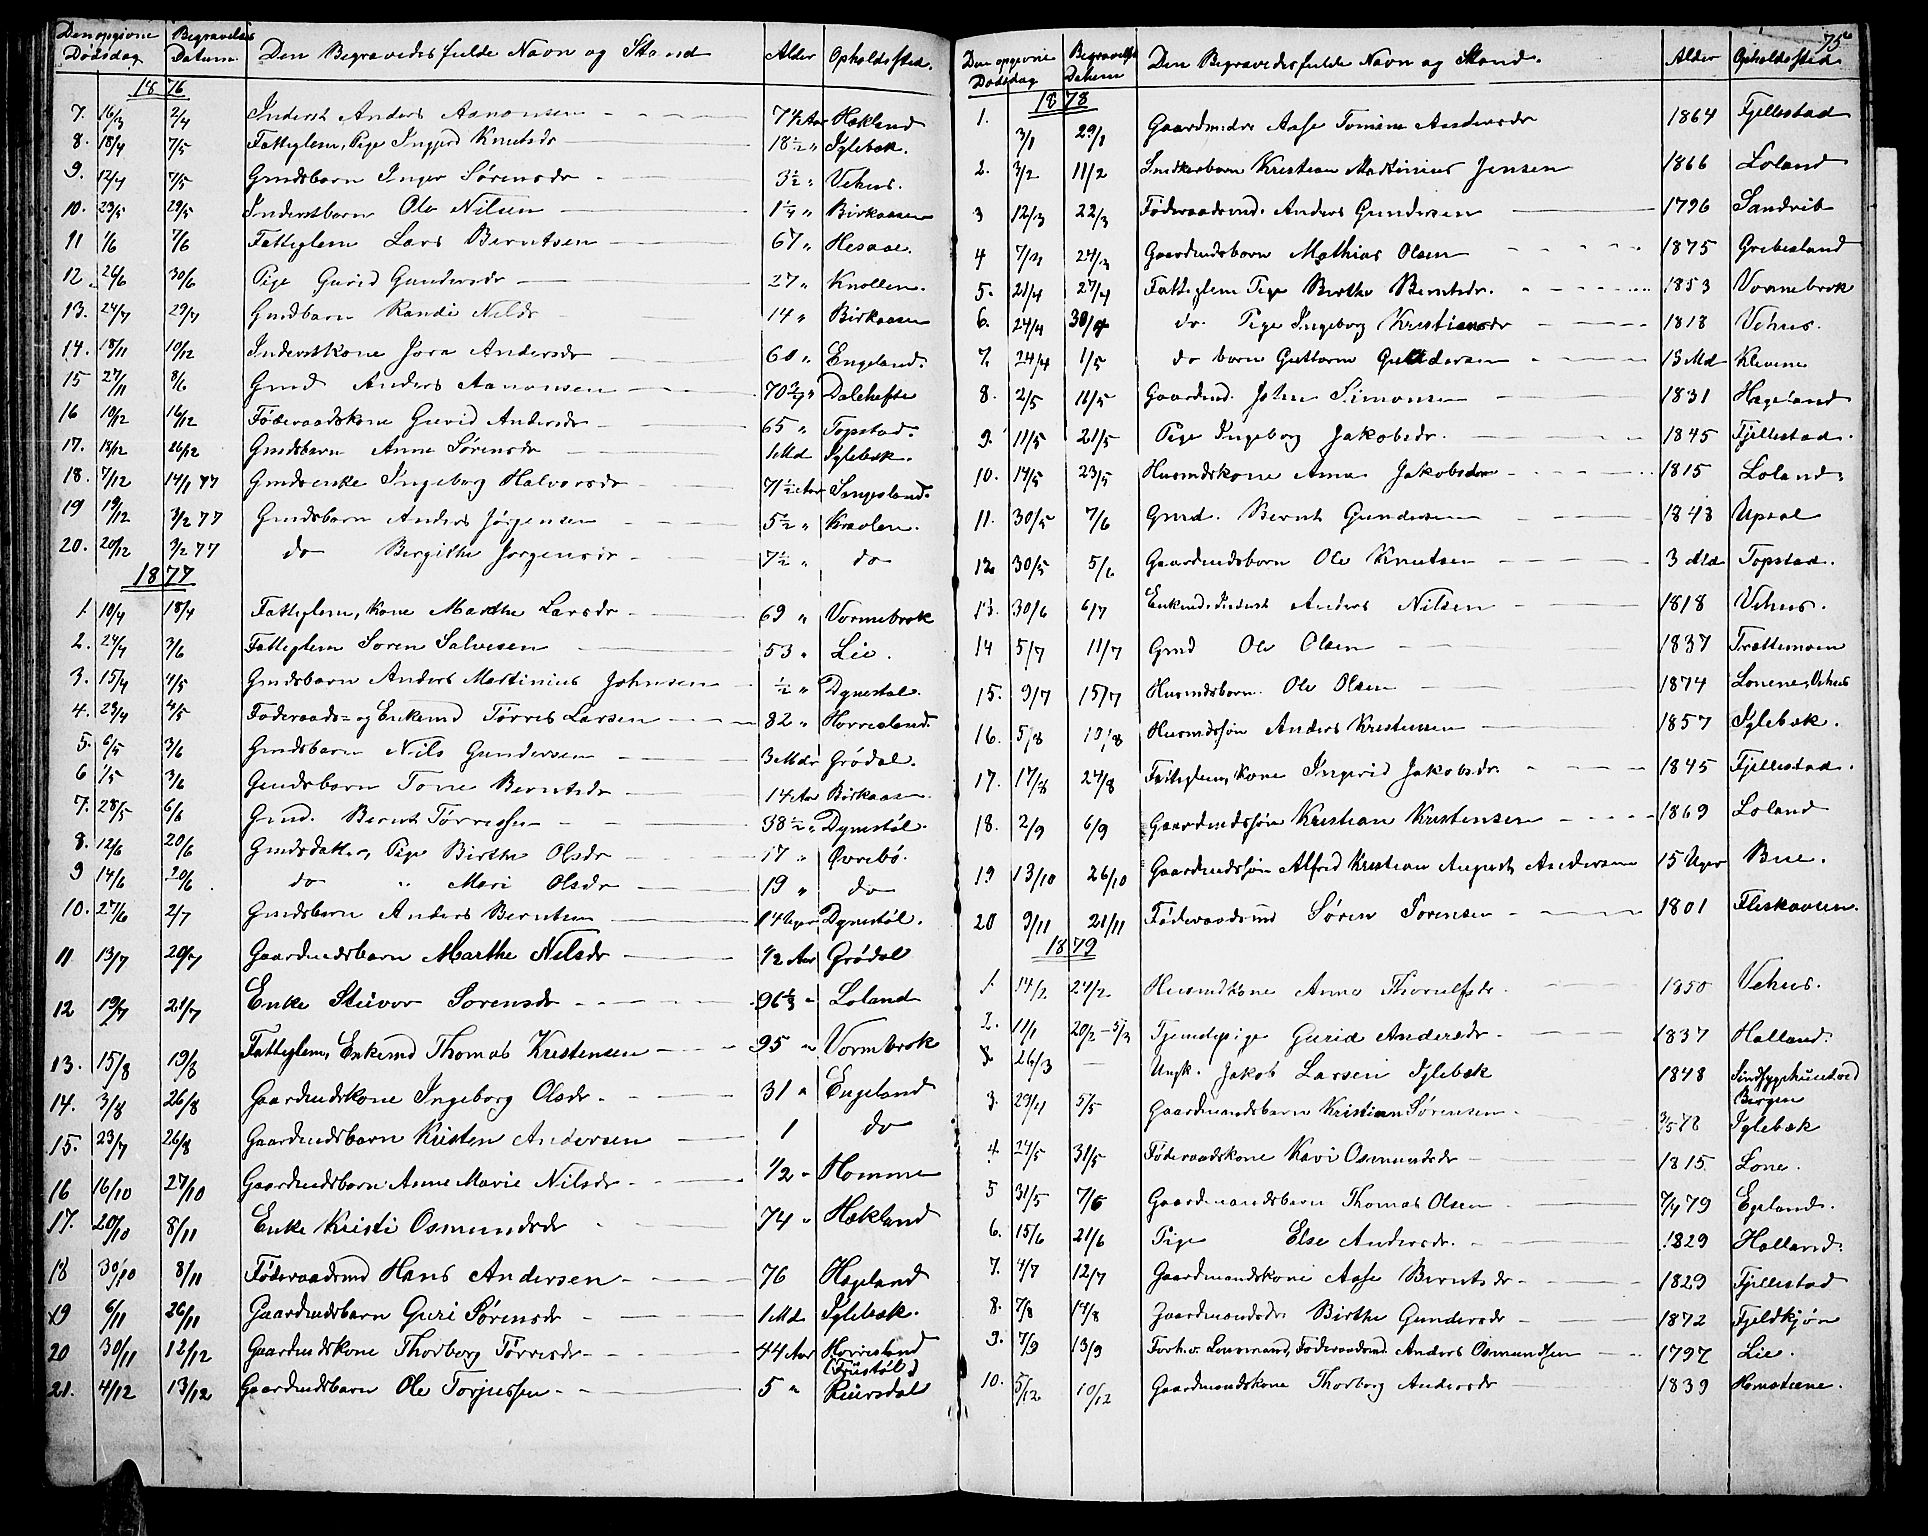 Den opgivne Dødsdag Begravelses Datum Den Begravedes fulde Navn og Stand Alder Opholdssted.
1876
7. 16/3 2/4 Inderst Anders Aanonsen 74 Aar Hækland
8. 18/4 7/5 Fattiglem, Pige Ingjerd Knutsdr 18½ " Iglebæk.
9. 12/4 7/5 Gmdsbarn Inger Sørensdr 3½ " Vehus.
10. 23/5 29/5 Inderstbarn Ole Nilsen 1¼ " Birkaasen
11 1/6 7/6 Fattiglem Lars Berntsen 67 " Hesaae.
12. 26/6 30/6 Pige Gurid Gundersdr 27 " Knollen.
13. 24/7 29/7 Gmdbarn Randi Nilsdr 14 " Birkaasen
14. 18/11 10/12 Inderstkone Jora Andersdr 60 " Engeland.
15 27/11 8/6 Gmd Anders Aanonsen 70 " Dalehefte
16 10/12 16/12 Føderaadskone Gurid Andersdr 65 " Topstad.
17. 18/12 26/12 Gmdsbarn Anne Sørensdr 1 Md Iglebæk.
18. 7/12 14/1 77 Gmdsenke Ingeborg Halvorsdr 71½ Aar Ingesland.
19 19/12 3/2 77 Gmdsbarn Anders Jørgensen 5½ " Kraolen.
20. 20/12 3/2 77 do Bergithe Jørgensdr 7½ " do
1877
1. 10/4 18/4 Fattiglem, Kone Marthe Larsdr 69 " Vormebrok
2. 24/4 3/6 Fattiglem Søren Salvesen 53 " Lie.
3. 15/4 4/5 Gmdsbarn Anders Martinius Johnsen ½ " Dynestøl.
4. 23/4 4/5 Føderaads= og Enkemd Tørres Larsen 82 " Horrisland.
5. 6/5 3/6 Gmdsbarn Nils Gundersen 3 Mdr Grødal.
6 1/5 3/6 Gmdsbarn Tone Berntsdr 14 Aar Birkaasen.
7. 28/5 6/6 Gmd. Bernt Tørressen 38½ " Dynestøl.
8. 12/6 20/6 Gmdsdatter, Pige Birthe Olsdr 17 " Øvrebø.
9 14/6 20/6 do " Mari Olsdr 19 " do
10. 27/6 2/7 Gmdsbarn Anders Berntsen 14 Uger Dynestøl.
11 13/7 20/7 Gaardmdsbarn Marthe Nilsdr ½ Aar Grødal
12 19/7 21/7 Enke Stuvor Sørensdr 96½ " Loland
13. 15/8 19/8 Fattiglem, Enkemd Thomas Kristensen 95 " Vormbrok
14. 3/8 26/8 Gaardmdskone Ingeborg Olsdr 31 " Engeland
15. 23/7 26/8 Gaardmdsbarn Kristen Andersen 1 do
16 16/10 27/10 Gaardmdsbarn Anne Marie Nilsdr ½ " Homme
17. 20/10 8/11 Enke Kristi Osmundsdr 74 " Hækland
18 30/10 8/11 Føderaadmd Hans Andersen 76 Hageland
19 6/11 26/11 Gaardmdsbarn Guri Sørensdr 1 Md Iglebæk.
20 30/11 12/12 Gaardmdskone Thorborg Tørresdr 44 Aar Horrisland
21. 4/12 13/12 Gaardmdsbarn Ole Torjussen 5 " Reiersdal
75
Den opgivne Dødsdag Begravelses Datum Den Begravedes fulde Navn og Stand. Alder Opholdssted.
1878
1. 3/1 29/1 Gaardmdsdr Aase Tomine Andersdr 1864 Fjellestad
2. 3/2 11/2 Snedkerbarn Kristian Martinius Jensen 1866 Loland
3 12/3 22/3 Føderaadsmd. Anders Gundersen 1796 Sandrib
4 24/3 Gaardmdsbarn Mathias Olsen 1875 Grebesland
5. 21/4 27/4 Fattiglem Pige Birthe Berntsdr. 1853 Vormebrok
6. 24/4 30/4 do. Pige Ingeborg Kristiansdr 1818 Vehus.
7. 24/4 1/5 do barn Guttorm Gundersen 13 Md Klevene
8. 2/5 11/5 Gaardmd. John Simonsen 1831 Hageland
9. 11/5 21/5 Pige Ingeborg Jakobsdr. 1845 Fjellestad.
10. 14/5 23/5 Husmdskone Anna Jakobsdr 1815 Loland.
11. 30/5 7/6 Gmd. Bernt Gundersen 1843 Upsal
12 30/5 5/6 Gaardmdsbarn Ole Knutsen 3 Md Topstad.
13. 30/6 6/7 Enkemd. Inderst Anders Nilsen 1818 Vehus.
14 5/7 11/7 Gmd Ole Olsen 1837 Trættemoen
15. 9/7 15/7 Husmdsbarn. Ole Olsen 1874 Lonene, Vehus
16. 5/8 19/8 Husmdssøn Anders Kristensen 1857 Iglebæk.
17. 17/8 24/8 Fattiglem, Kone Ingerid Jakobsdr. 1845 Fjellestad.
18. 2/9 6/9 Gaardmdssøn Kristian Kristensen 1869 Loland
19 13/10 26/10 Gaardmdssøn Alfred Kristian August Andersen 15 Uger Bue.
20 9/11 21/11 Føderaadsmd Søren Sørensen 1801 Fliskaasen.
1879
1. 14/2 24/2 Husmdkone Anne Thorulfsdr. 1850 Vehus.
2. 11/1 20/2 - 5/3 Tjenstepige Gurid Andersdr. 1837 Halland.
26/3 — Ungk. Jakob Larsen Iglebæk 1848 Sindssygehuset ved Bergen
3. 23/4 5/5 Gaardmandsbarn Kristian Sørensen 3/5 78 Iglebæk
4. 24/5 31/5 Føderaadskone Kari Osmundsdr 1815 Lone.
5 31/5 7/6 Gaardmandsbarn Thomas Olsen 7/4 79 Egeland.
6. 15/6 21/6 Pige Else Andersdr. 1829 Halland.
7. 4/7 12/7 Gaardmandskone Aase Berntsdr 1829 Fjellestad
8. 7/8 14/8 Gaardmandsdr Birthe Gundersdr 1872 Fjeldkjøn
9. 7/9 13/9 Forh.v. Lensmand, Føderaadsmd. Anders Osmundsen 1797 Lie.
10. 5/12 10/12 Gaardmandskone Thorborg Andersdr 1839 Homstiene.